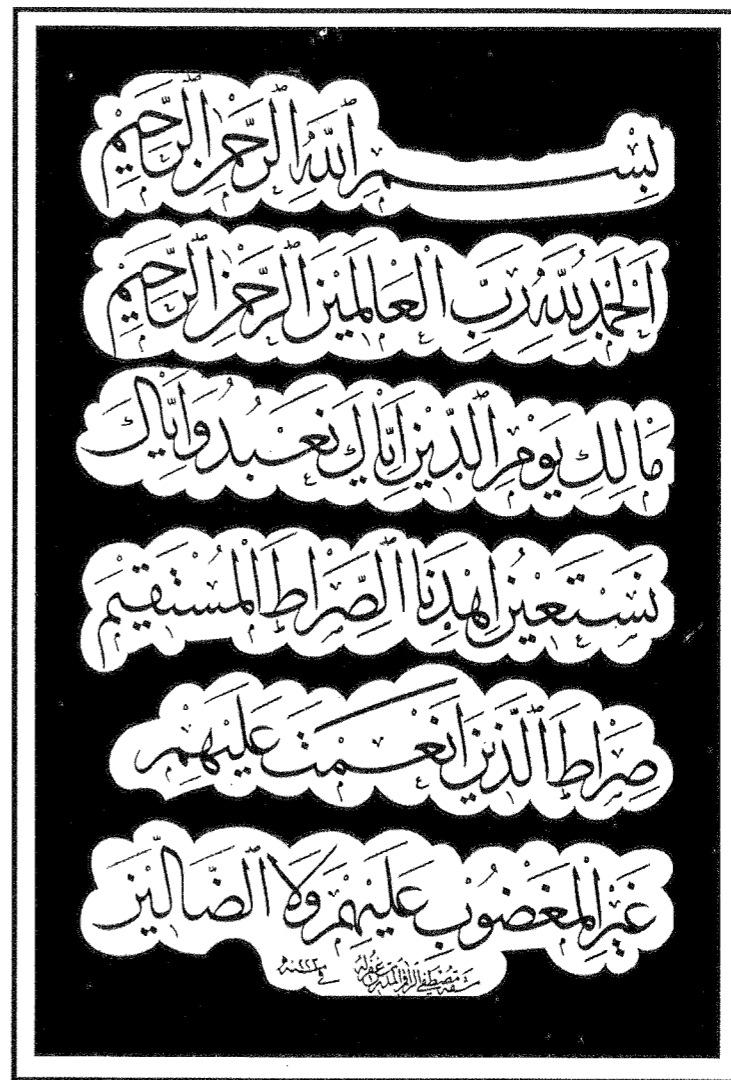 بِسْمِ ٱللَّهِ ٱلرَّحْمٰنِ ٱلرَّحِيْمِ
اَلْحَمْدُ لِلَّهِ رَبِّ الْعَالَمِيْنَ ٱلرَّحْمٰنِ ٱلرَّحِيْمِ
مَالِكِ يَوْمِ ٱلدِّيْنِ اِيَّاكَ نَعْبُدُ وَاِيَّاكَ
نَسْتَعِيْنُ اِهْدِنَا ٱلصِّرَاطَ الْمُسْتَقِيْمَ
صِرَاطَ ٱلَّذِيْنَ اَنْعَمْتَ عَلَيْهِمْ
غَيْرِ الْمَغْضُوْبِ عَلَيْهِمْ وَلَا ٱلضَّالِّيْنَ
مصطفى غفر له